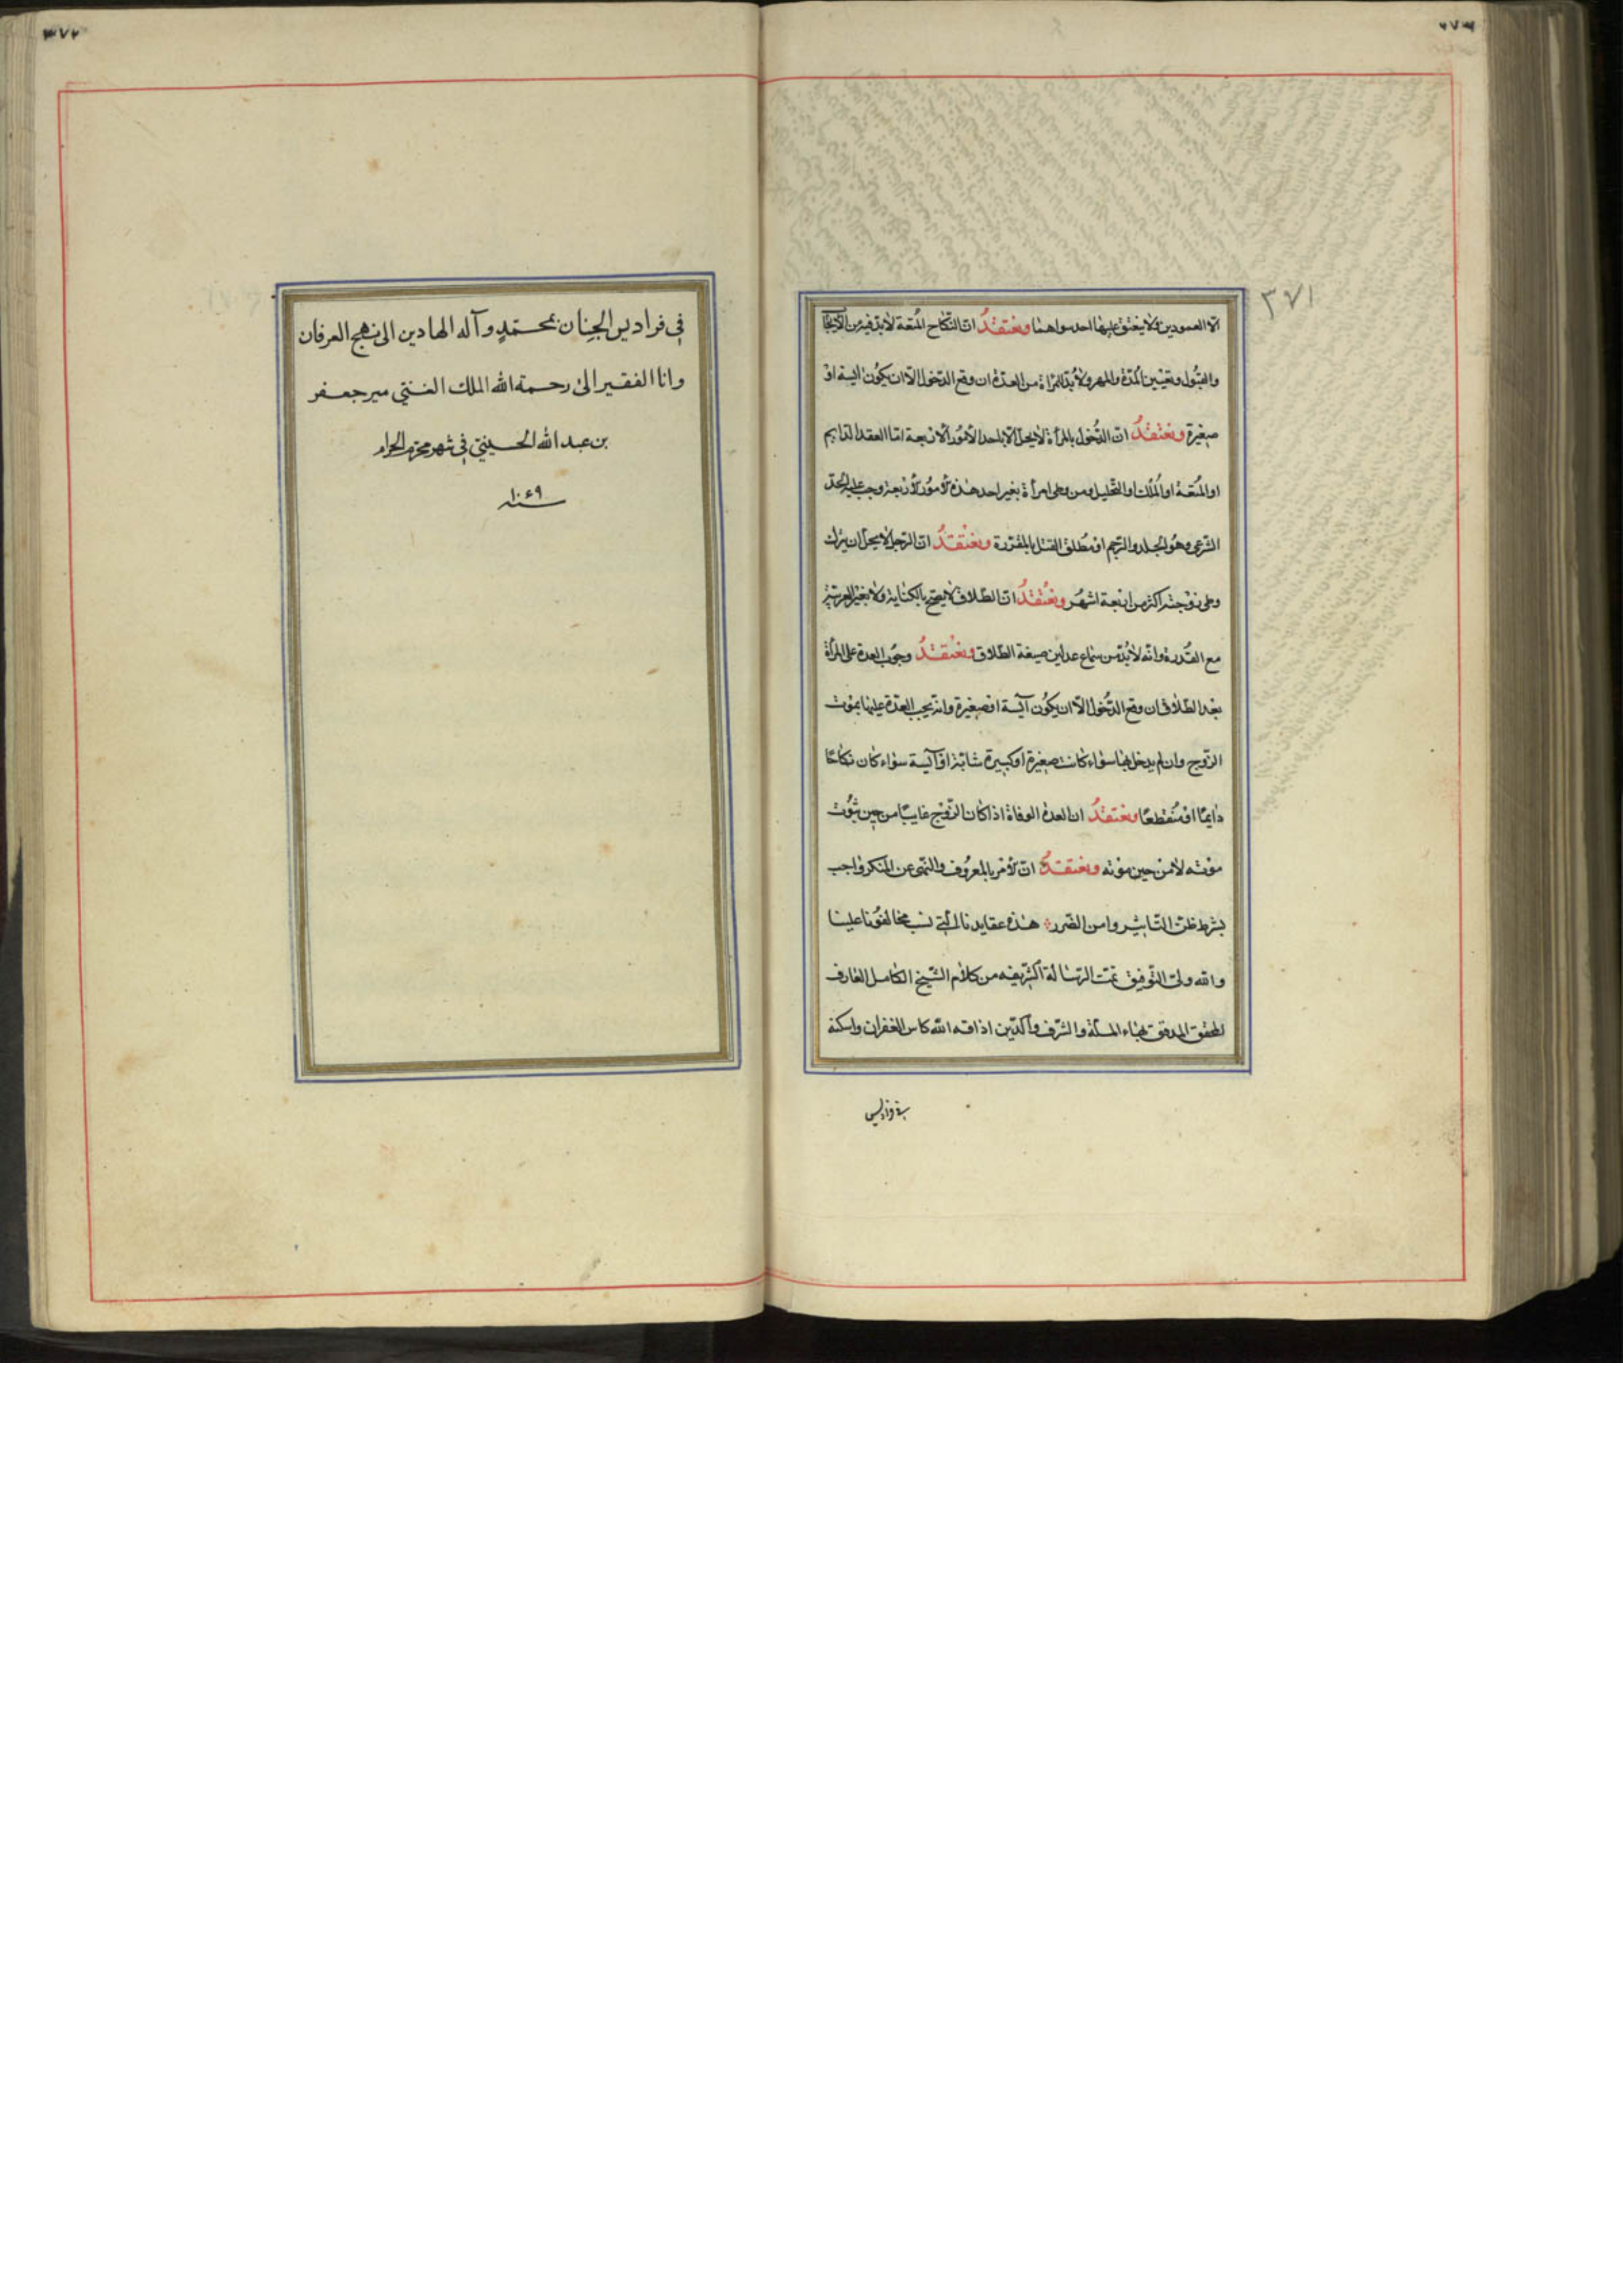 ٣٧١
الا العمودين ولا يعتق عليها احد سواهما ونعتقد ان النكاح المتعة لا بد فيه من الايجاب
والقبول وتعيين المدة والمهر ولا بد للمراة من العدة ان وقع الدخول الا ان يكون آيسة او
صغيرة ونعتقد ان الدخول بالمرأة لا يحل الا باحد الامور الاربعة اما العقد الدايم
او المتعة او الملك او التحليل ومن وطى امرأة بغير احد هذه الامور الاربعة وجب عليه الحد
الشرعى وهو الجلد والرجم او مطلق القتل بالمقررة ونعتقد ان الرجل لا يحل ان يترك
وطى زوجته اكثر من اربعة اشهر ونعتقد ان الطلاق لا يصح بالكناية ولا بغير العربية
مع القدرة وانه لا بد من سماع عدلين صيغة الطلاق ونعتقد وجوب العدة على المرأة
بعد الطلاق ان وقع الدخول الا ان يكون آيسة او صغيرة وانه يجب العدة عليها بموت
الزوج وان لم يدخل بها سواء كانت صغيرة او كبيرة شابة او آيسة سواء كان نكاحا
دايما او منقطعا ونعتقد ان العدة الوفاة اذا كان الزوج غايبا من حين ثبوت
موته لا من حين موته ونعتقد ان الامر بالمعروف والنهى عن المنكر واجب
بشرط ظن التاثير وامن الضرر هذه عقايدنا التى نسب مخالفونا علينا
والله ولى التوفيق تمت الرسالة الشريفه من كلام الشيخ الكامل العارف
المحقق المدقق بهاء الملة والشرف والدين اذاقه الله كاس الغفران واسكنه
فى فراديس
فى فراديس الجنان بمحمد وآله الهادين الى نهج العرفان
وانا الفقير الى رحمة الله الملك الغنى مير جعفر
بن عبد الله الحسينى فى شهر محرم الحرام
سنه ١٠٤٩